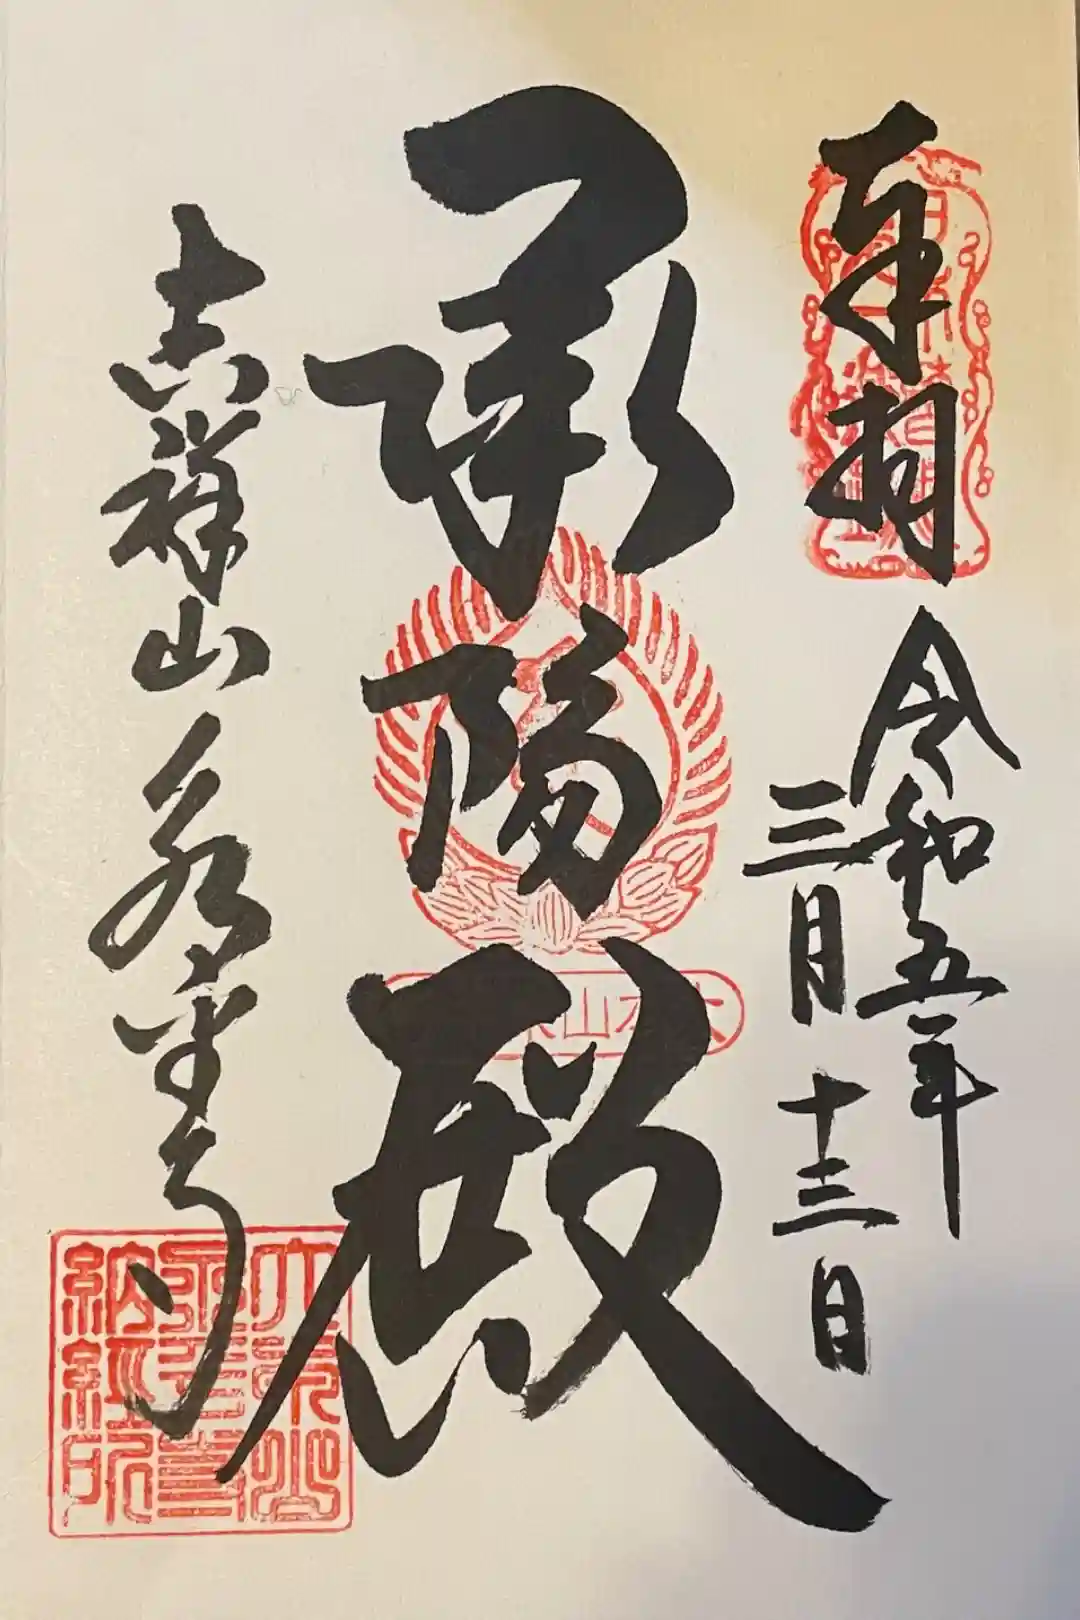 奉拝
令和五年
三月十三日
承陽殿
吉祥山永平寺
大本山
永平寺
納経所